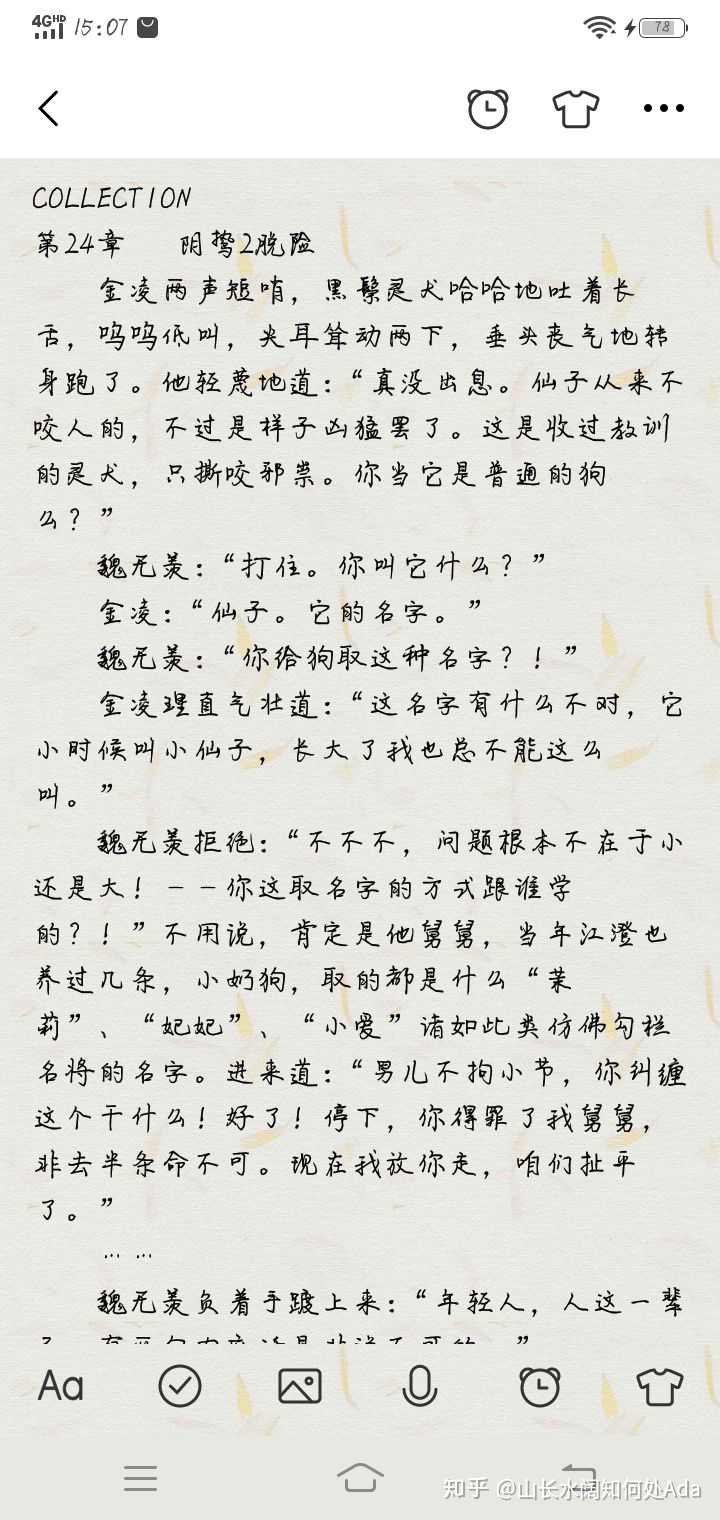 4G HD 15:07 78
COLLECTION
第24章 阴鸷2脱险
金凌两声短哨，黑鬃灵犬哈哈地吐着长
舌，呜呜低叫，尖耳耸动两下，垂头丧气地转
身跑了。他轻蔑地道：“真没出息。仙子从来不
咬人的，不过是样子凶猛罢了。这是收过教训
的灵犬，只撕咬邪祟。你当它是普通的狗
么？”
魏无羡：“打住。你叫它什么？”
金凌：“仙子。它的名字。”
魏无羡：“你给狗取这种名字？！”
金凌理直气壮道：“这名字有什么不对，它
小时候叫小仙子，长大了我也总不能这么
叫。”
魏无羡拒绝：“不不不，问题根本不在于小
还是大！－－你这取名字的方式跟谁学
的？！”不用说，肯定是他舅舅，当年江澄也
养过几条，小奶狗，取的都是什么“茉
莉”、“妃妃”、“小爱”诸如此类仿佛勾栏
名将的名字。进来道：“男儿不拘小节，你纠缠
这个干什么！好了！停下，你得罪了我舅舅，
非去半条命不可。现在我放你走，咱们扯平
了。”
… …
魏无羡负着手踱上来：“年轻人，人这一辈
Aa
知乎 @山长水阔知何处Ada